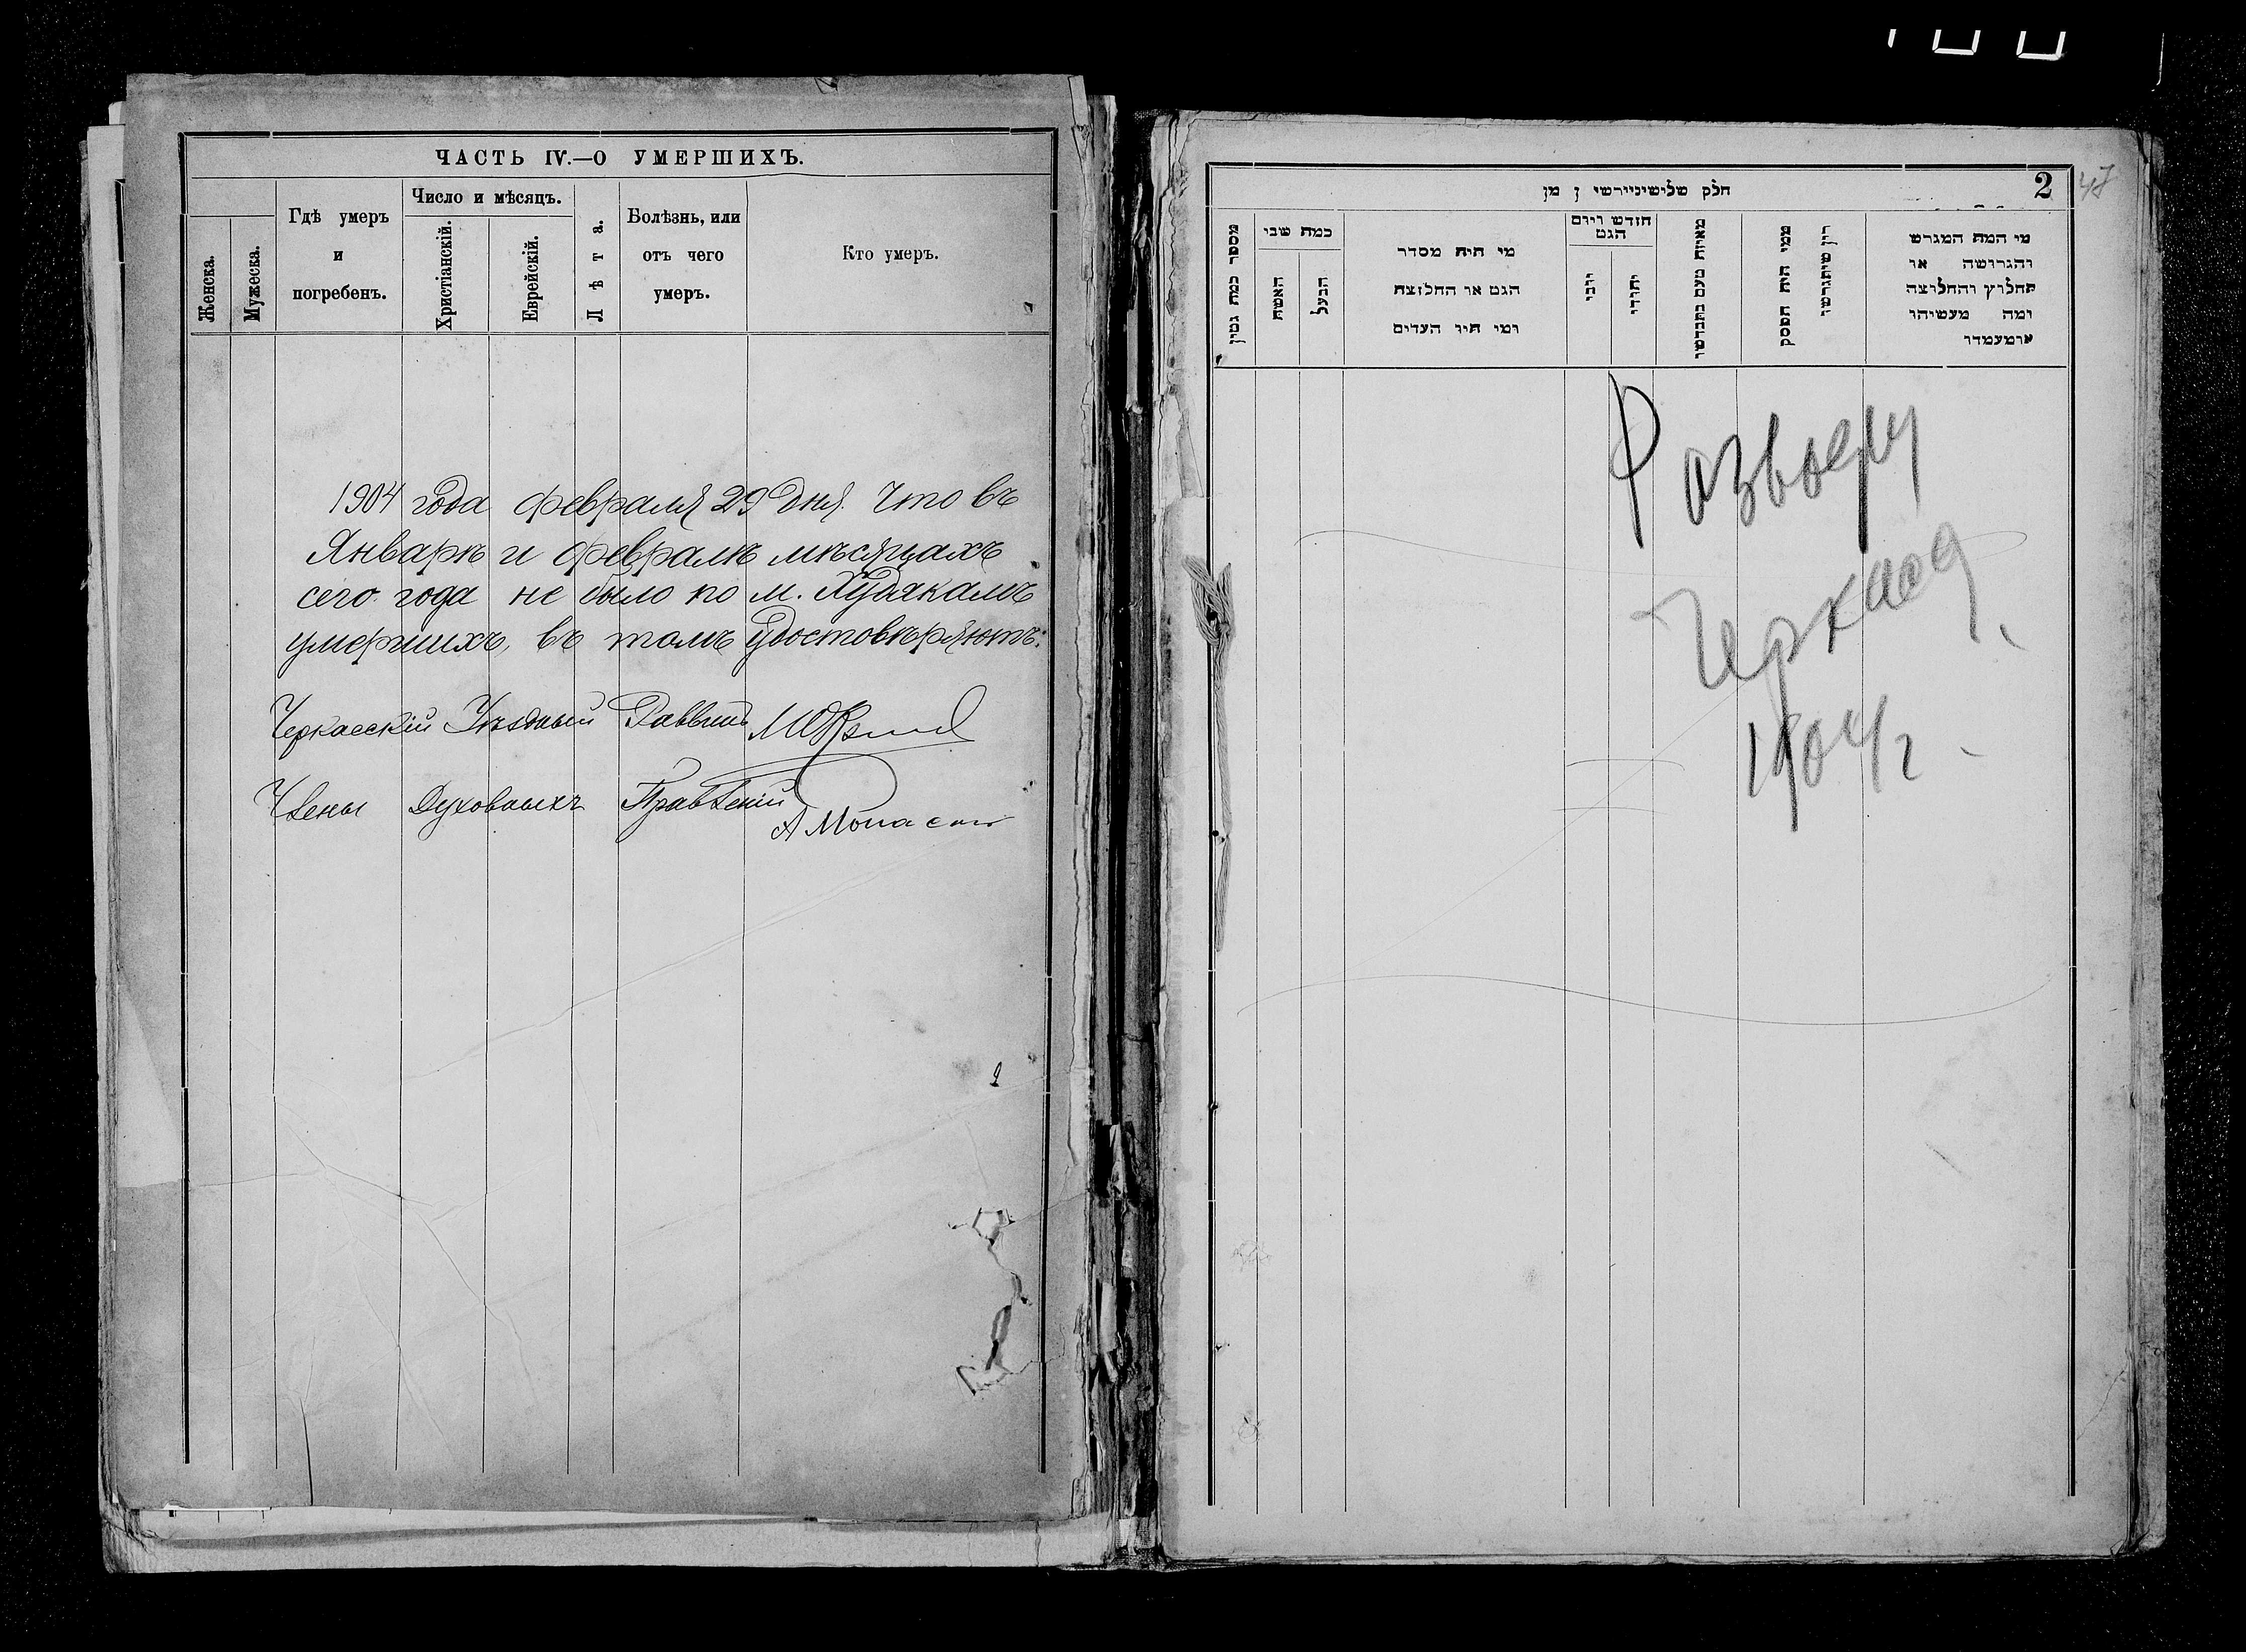 ЧАСТЬ IV.—О УМЕРШИХЪ.
Женска.
Мужеска.
Гдѣ умеръ
и
погребенъ.
Число и мѣсяцъ.
Христіанскій.
Еврейскій.
Лѣта.
Болѣзнь, или
отъ чего
умеръ.
Кто умеръ.
1904 года февраля 29 дня. Что въ
Январѣ и февралѣ мѣсяцахъ
сего года не было по м. Худякамъ
умершихъ, въ томъ удостовѣряютъ:
Черкасскій Уѣздный Раввинъ
Члены Духовныхъ Правленій
2
47
מספר כמה גטין
כמה שבי
האשה
הבעל
מי היה מסדר
הגט או החלוצה
ומי היו העדים
חודש ויום
הגט
יוני
יהודי
מאיזה טעם נתגרשו
ממי היה הפסק
דין שיתגרשו
מי המה המגרש
והגרושה או
החלוץ והחלוצה
ומה מעשיהו
ומעמדו
Черкасс
1904 г